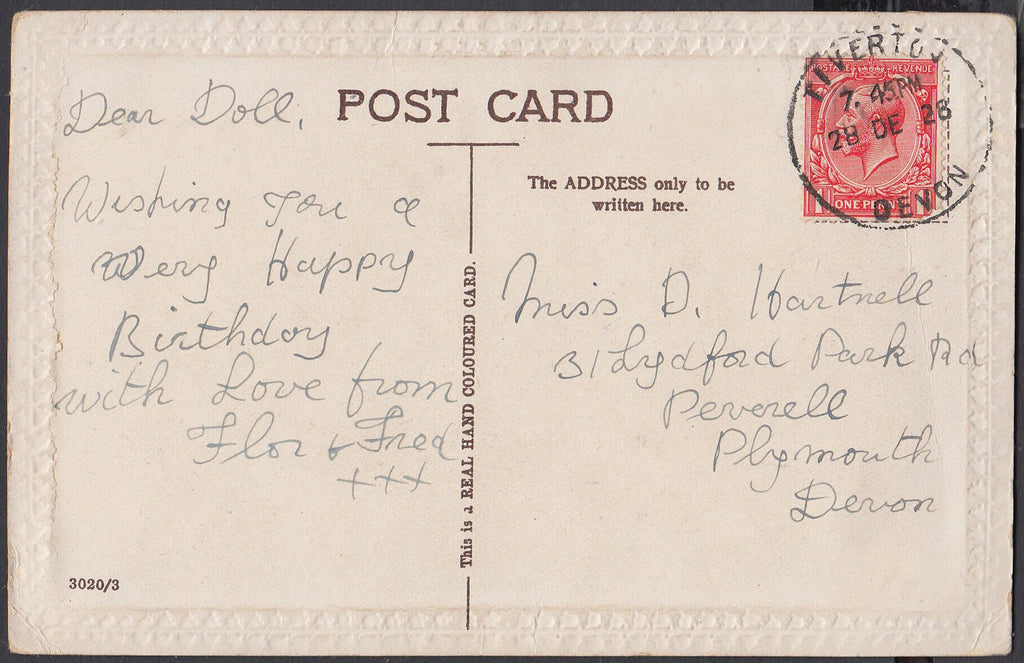 POST CARD
Dear Doll,
Wishing You a
Very Happy
Birthday
with Love from
Flor & Fred
+++
3020/3
This is a REAL HAND COLOURED CARD.
The ADDRESS only to be
written here.
TIVERTON
7. 45 PM
28 DE 28
DEVON
POSTAGE REVENUE
ONE PENNY
Miss D. Hartnell
31 Lydford Park Rd
Peverell
Plymouth
Devon